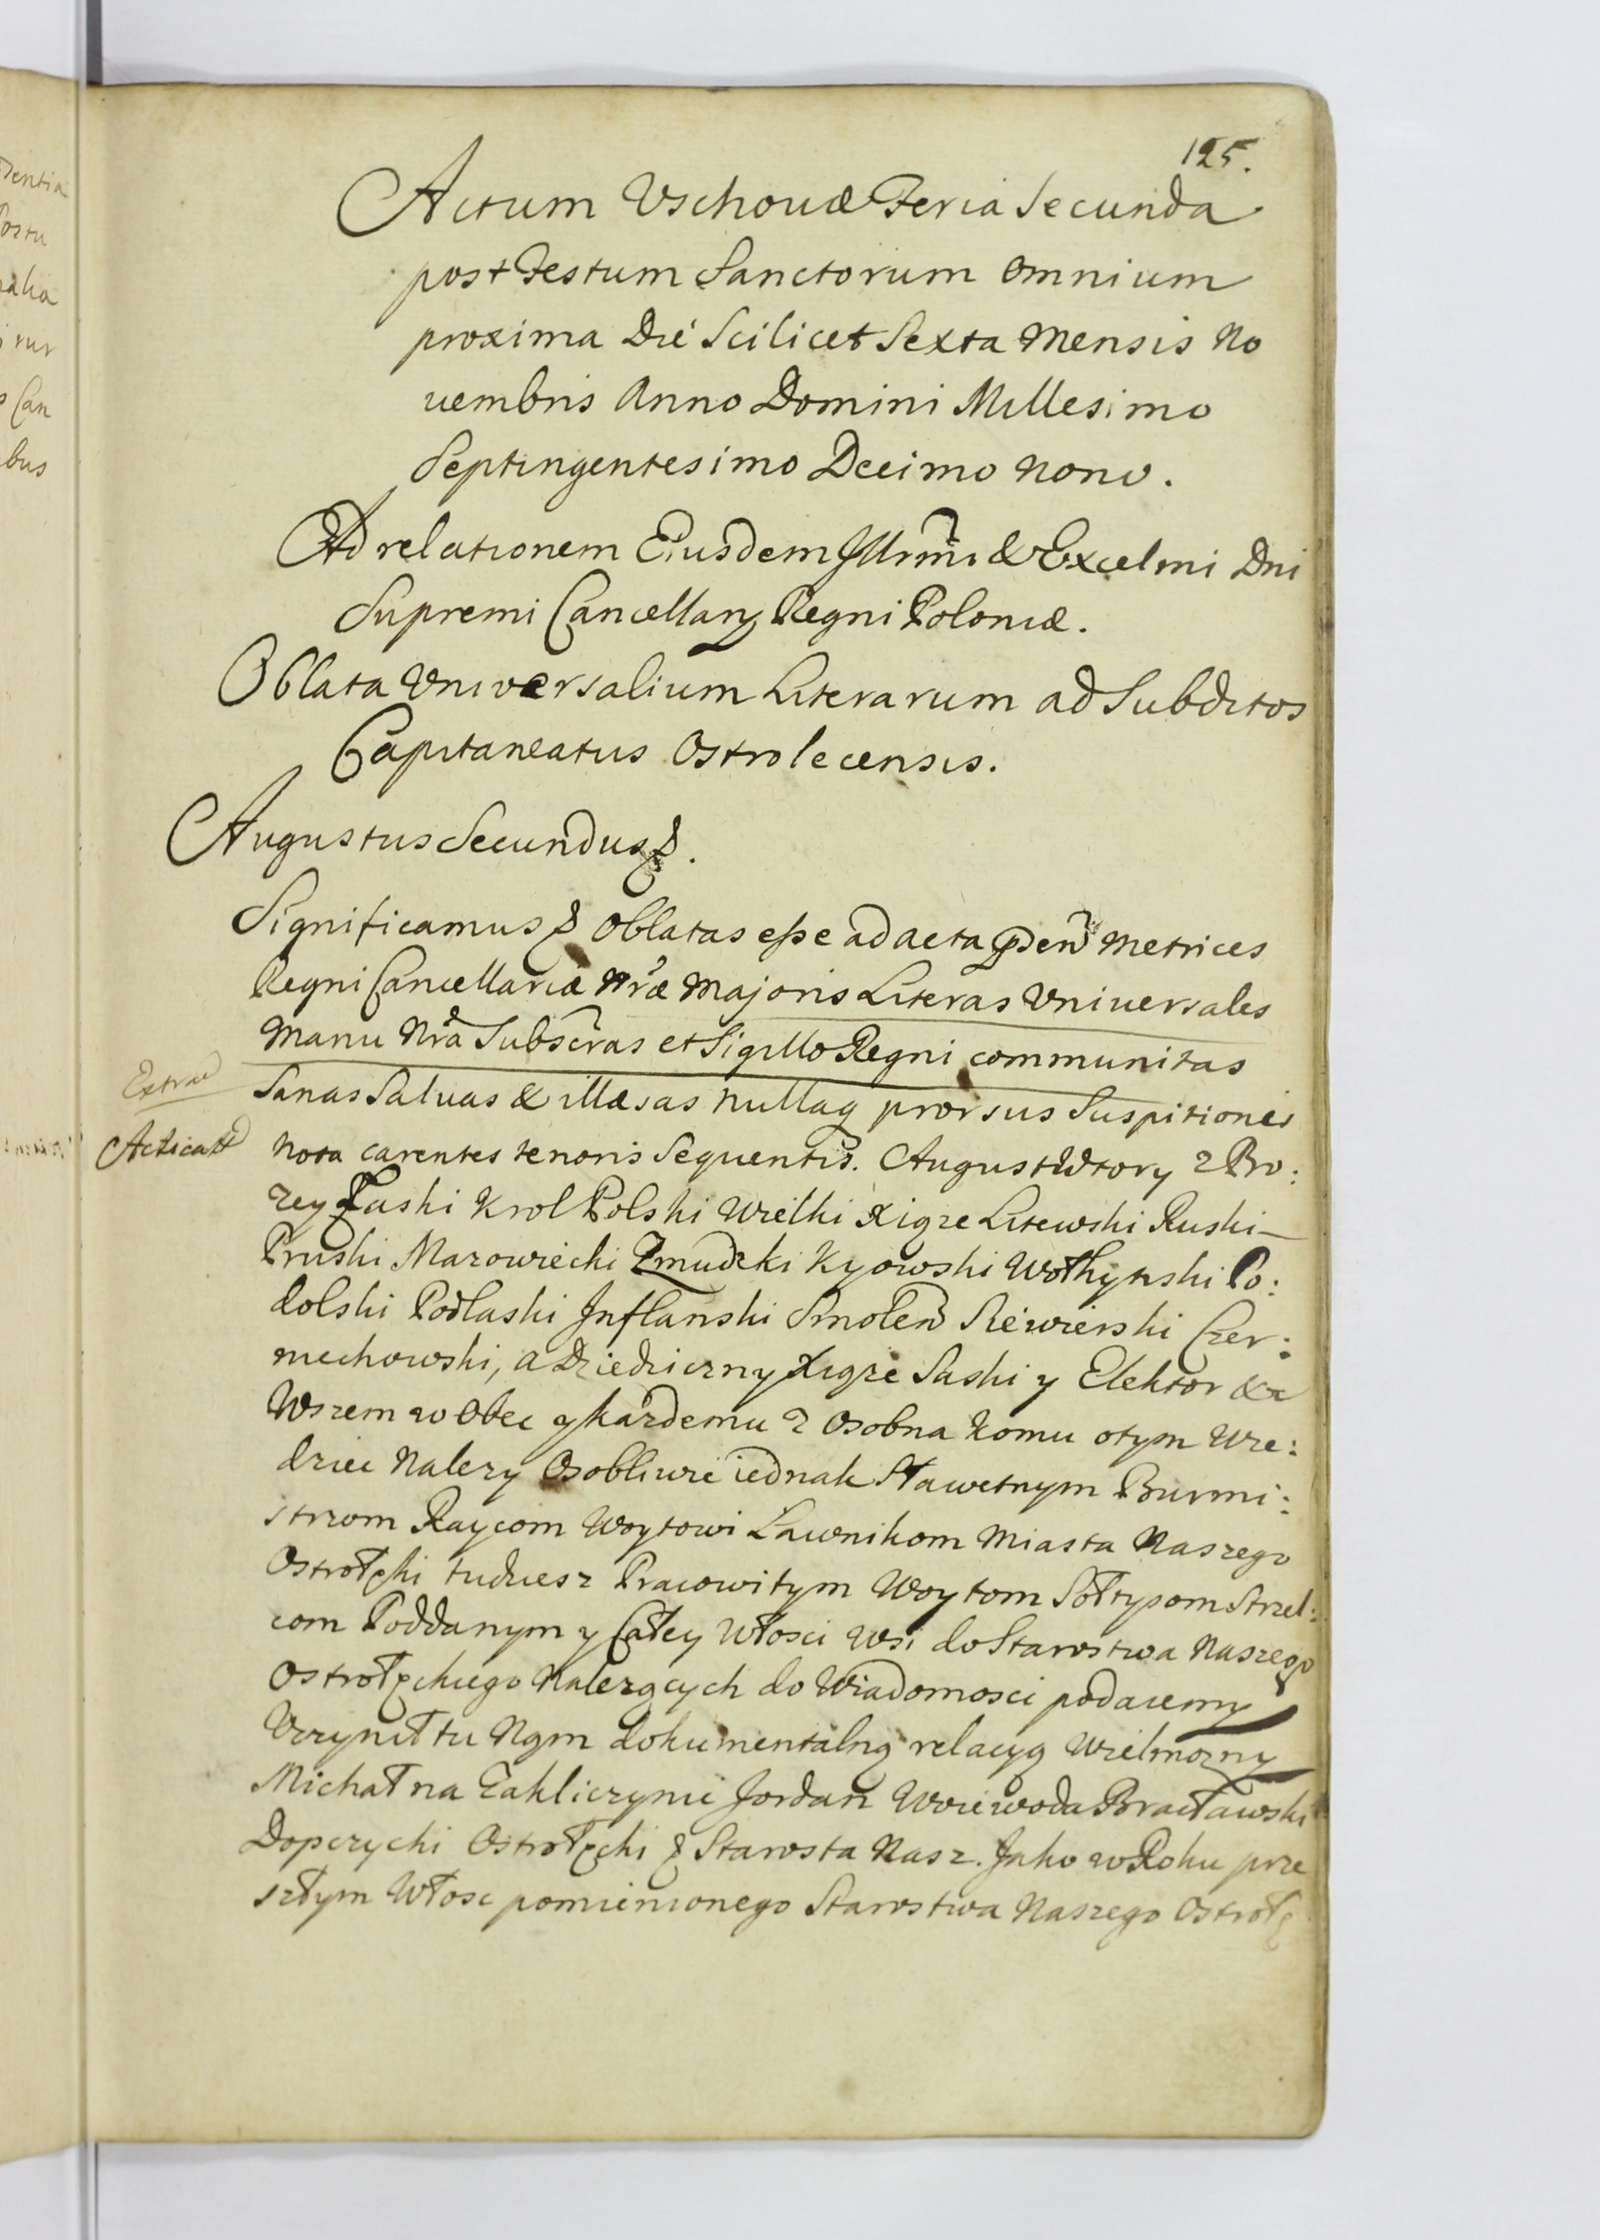 125.
Actum Vschovæ Feria Secunda
post Festum Sanctorum Omnium
proxima Die Scilicet Sexta Mensis No
uembris Anno Domini Millesimo
Septingentesimo Decimo Nono.
Ad relationem Eiusdem Illrmi & Excelmi Dni
Supremi Cancellarÿ Regni Poloniæ.
Oblata Vniversalium Literarum ad Subditos
Capitaneatus Ostrolecensis.
Augustus Secundus &.
Significamus & Oblatas esse ad acta Metrices
Regni Cancellariæ Nræ Majoris Literas Vniuersales
Manu Nra Subscras et Sigillo Regni communitas
Extrad
Sanas Saluas & illæsas nullaq prorsus Suspitionis
Acticatt
Nota carentes tenoris Sequentis. August Wtory z Bo:
zey Łaski Krol Polski Wielki Xiąze Litewski Ruski
Pruski Mazowiecki Zmudzki Kyowski Wołhynski Po:
dolski Podlaski Inflanski Smolen Siewierski Czer:
niechowski, a Dziedziczny Xiąze Saski y Elektor &c
Wszem w Obec y kazdemu z Osobna komu otym Wie:
dziec Nalezy Osobliwie iednak Sławetnym Burmi:
strzom Raycom Woytowi Lawnikom Miasta Naszego
Ostrołęki tudziesz Pracowitym Woytom Sołtysom Strzel:
com Poddanym y Całey Włosci Wsi do Starostwa Naszego
Ostrołęckiego Nalezących do Wiadomosci podaiemy
Vczynił tu Nąm dokumentalną relacyą Wielmozny
Michał na Zakliczynie Jordan Woiewoda Bracławski
Dopczycki Ostrołęcki & Starosta Nasz. Jako w Roku prze
szłym Włosc pomienionego Starostwa Naszego Ostrołę